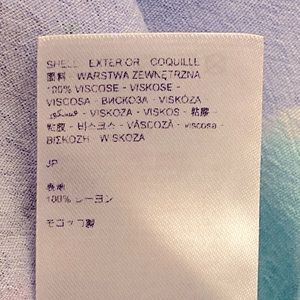 SHELL EXTERIOR COQUILLE
面料 - WARSTWA ZEWNĘTRZNA
100% VISCOSE - VISKOSE -
VISCOSA - ВИСКОЗА - VISKÓZA
- VISKOZA - VISKOS - 粘膠 -
粘胶 - 비스코스 - VÂSCOZĂ - viscosa -
ΒΙΣΚΟΖΗ - WISKOZA
JP
表地
100% レーヨン
モロッコ製